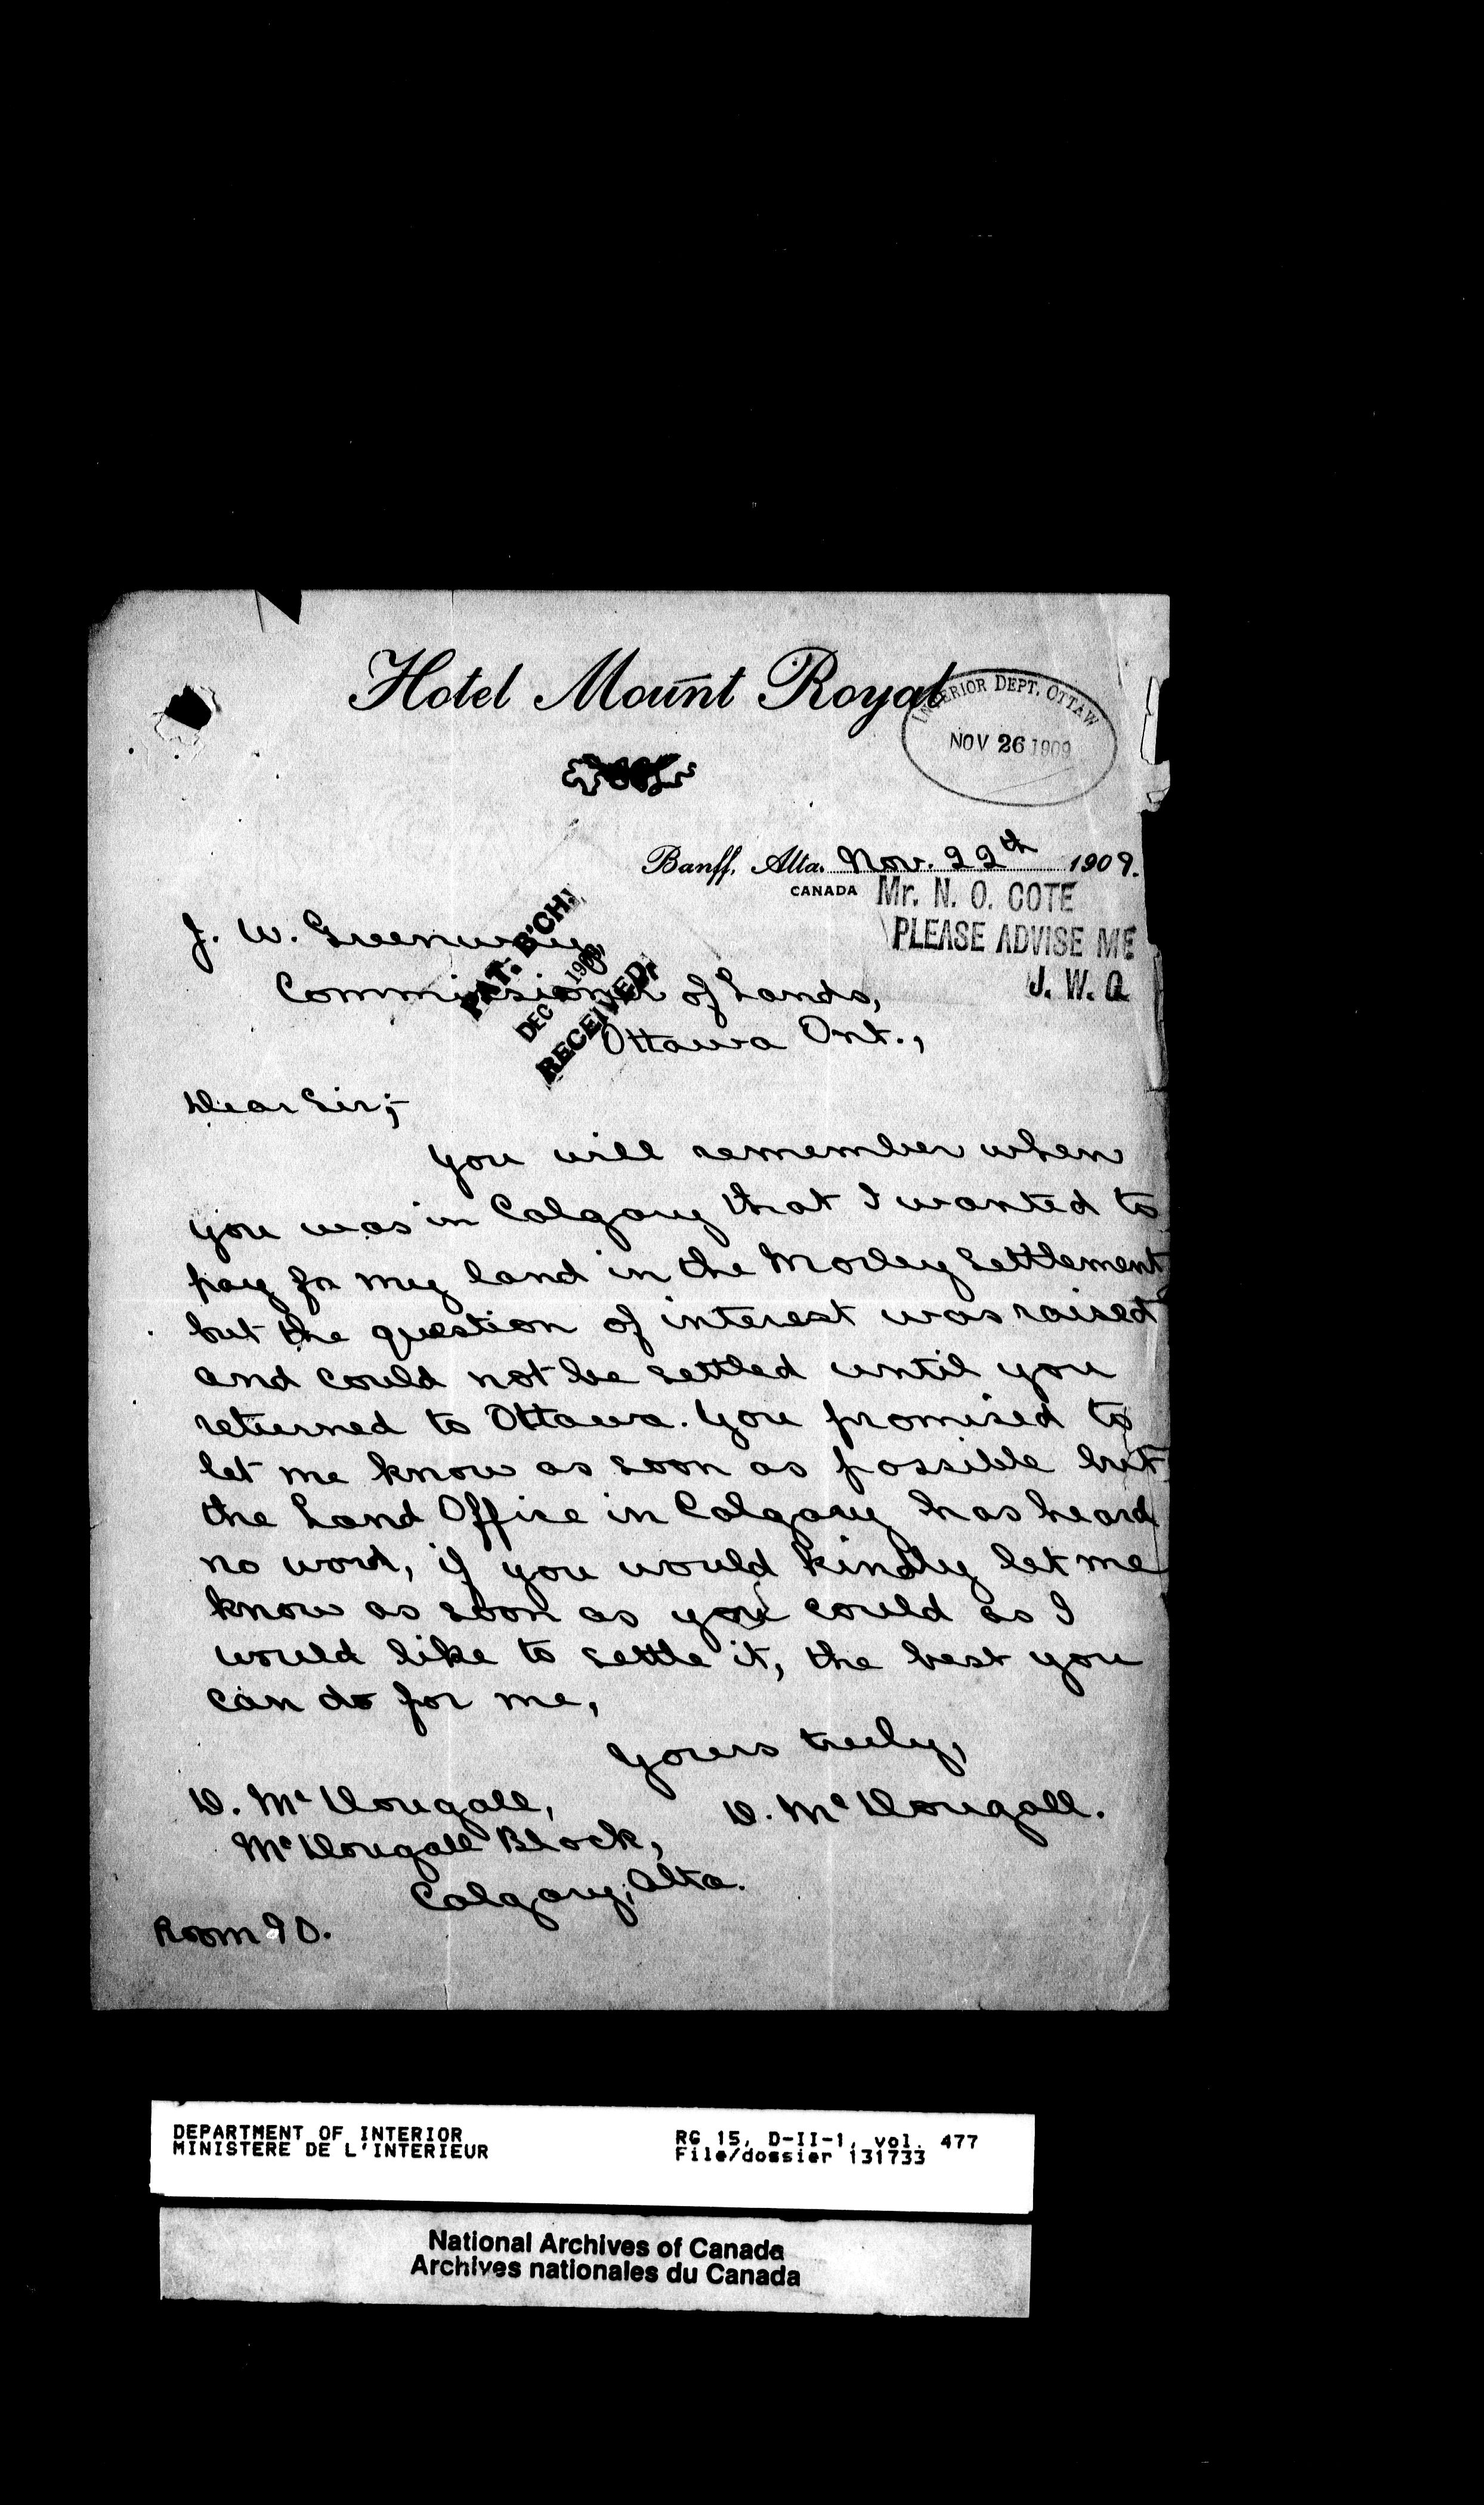 Hotel Mount Royal
INTERIOR DEPT. OTTAW
NOV 26 1909
Banff, Alta. Nov. 22th 1909.
CANADA
Mr. N. O. COTE
PLEASE ADVISE ME
J. W. G
PAT. B'CH.
DEC 1909
RECEIVED.
J. W. Greenway,
Commissioner of Lands,
Ottawa Ont.,
Dear Sir;-
You will remember when
you was in Calgary that I wanted to
pay for my land in the Morley Settlement
but the question of interest was raised
and could not be settled until you
returned to Ottawa. You promised to
let me know as soon as possible but
the Land Office in Calgary has heard
no word, if you would kindly let me
know as soon as you could as I
would like to settle it, the best you
can do for me,
Yours truly,
D. McDougall.
D. McDougall,
McDougall Block,
Calgary, Alta.
Room 90.
DEPARTMENT OF INTERIOR
MINISTERE DE L'INTERIEUR
RG 15, D-II-1, vol. 477
File/dossier 131733
National Archives of Canada
Archives nationales du Canada